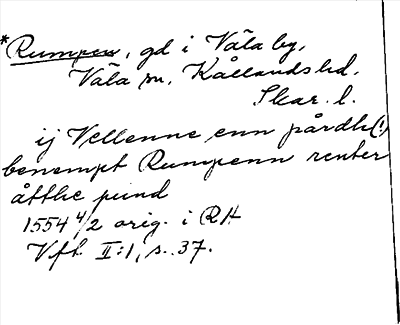 *Rumpen, gd i Väla by,
Väla sn, Kållands hd,
Skar. l.
ij Vellenne enn pårdh(!)
benempt Rumpenn renter
åtthe pund
1554 4/2 orig. i RH
Vft II:1, s. 37.